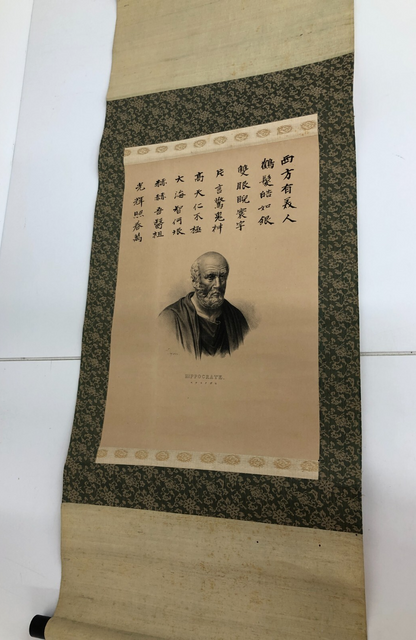 西方有義人
鶴髪皓如銀
雙眼睨寰宇
片言驚鬼神
高天仁不極
大海智何垠
赫赫吾醫祖
光輝照春萬
HIPPOCRATE.